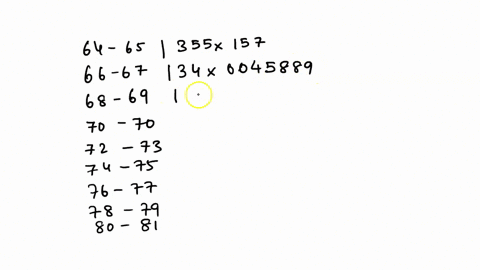 64 - 65 | 355 x 157
66 - 67 | 34 x 0045889
68 - 69 |
70 - 70
72 - 73
74 - 75
76 - 77
78 - 79
80 - 81